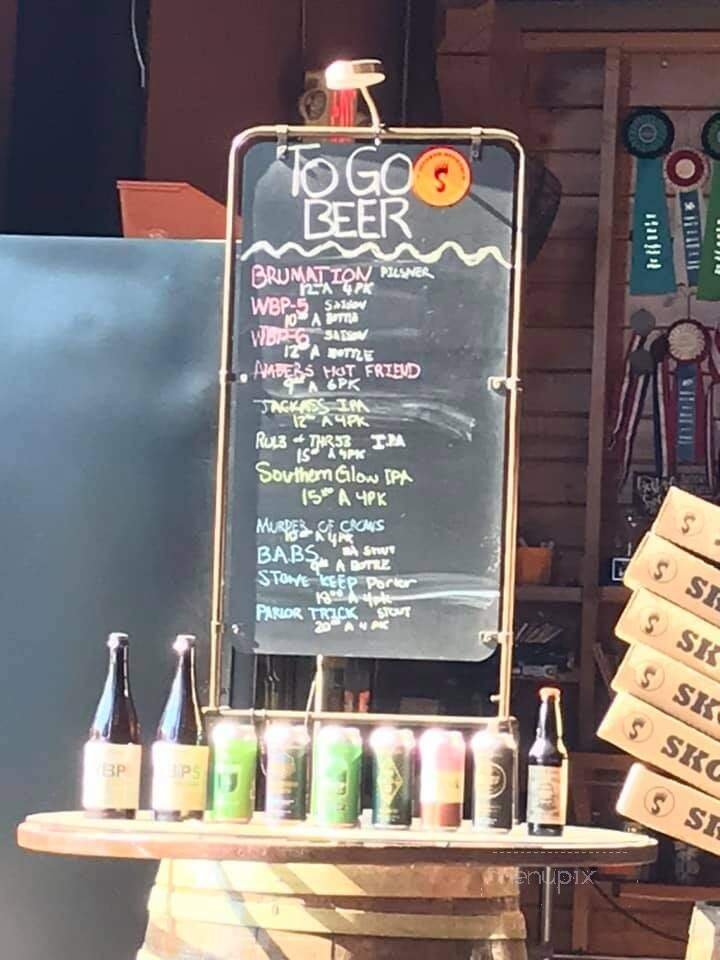 TO GO
BEER
BRUMATION PILSNER
12 A 4PK
WBP-5 SAISON
10 A BOTTLE
WBP-6 SAISON
12 A BOTTLE
AMBERS HOT FRIEND
9 A 6PK
JACKASS IPA
12 A 4PK
IPA
15 A 4PK
Southern Glow IPA
15 A 4PK
MURDER OF CROWS
10 A 4PK
B.A.B.S. BA STOUT
A BOTTLE
STONE KEEP Porter
18 A 4pk
PARLOR TRICK STOUT
20 A 4 PK
S
SK
SKO
SKO
SKO
SK
menupix